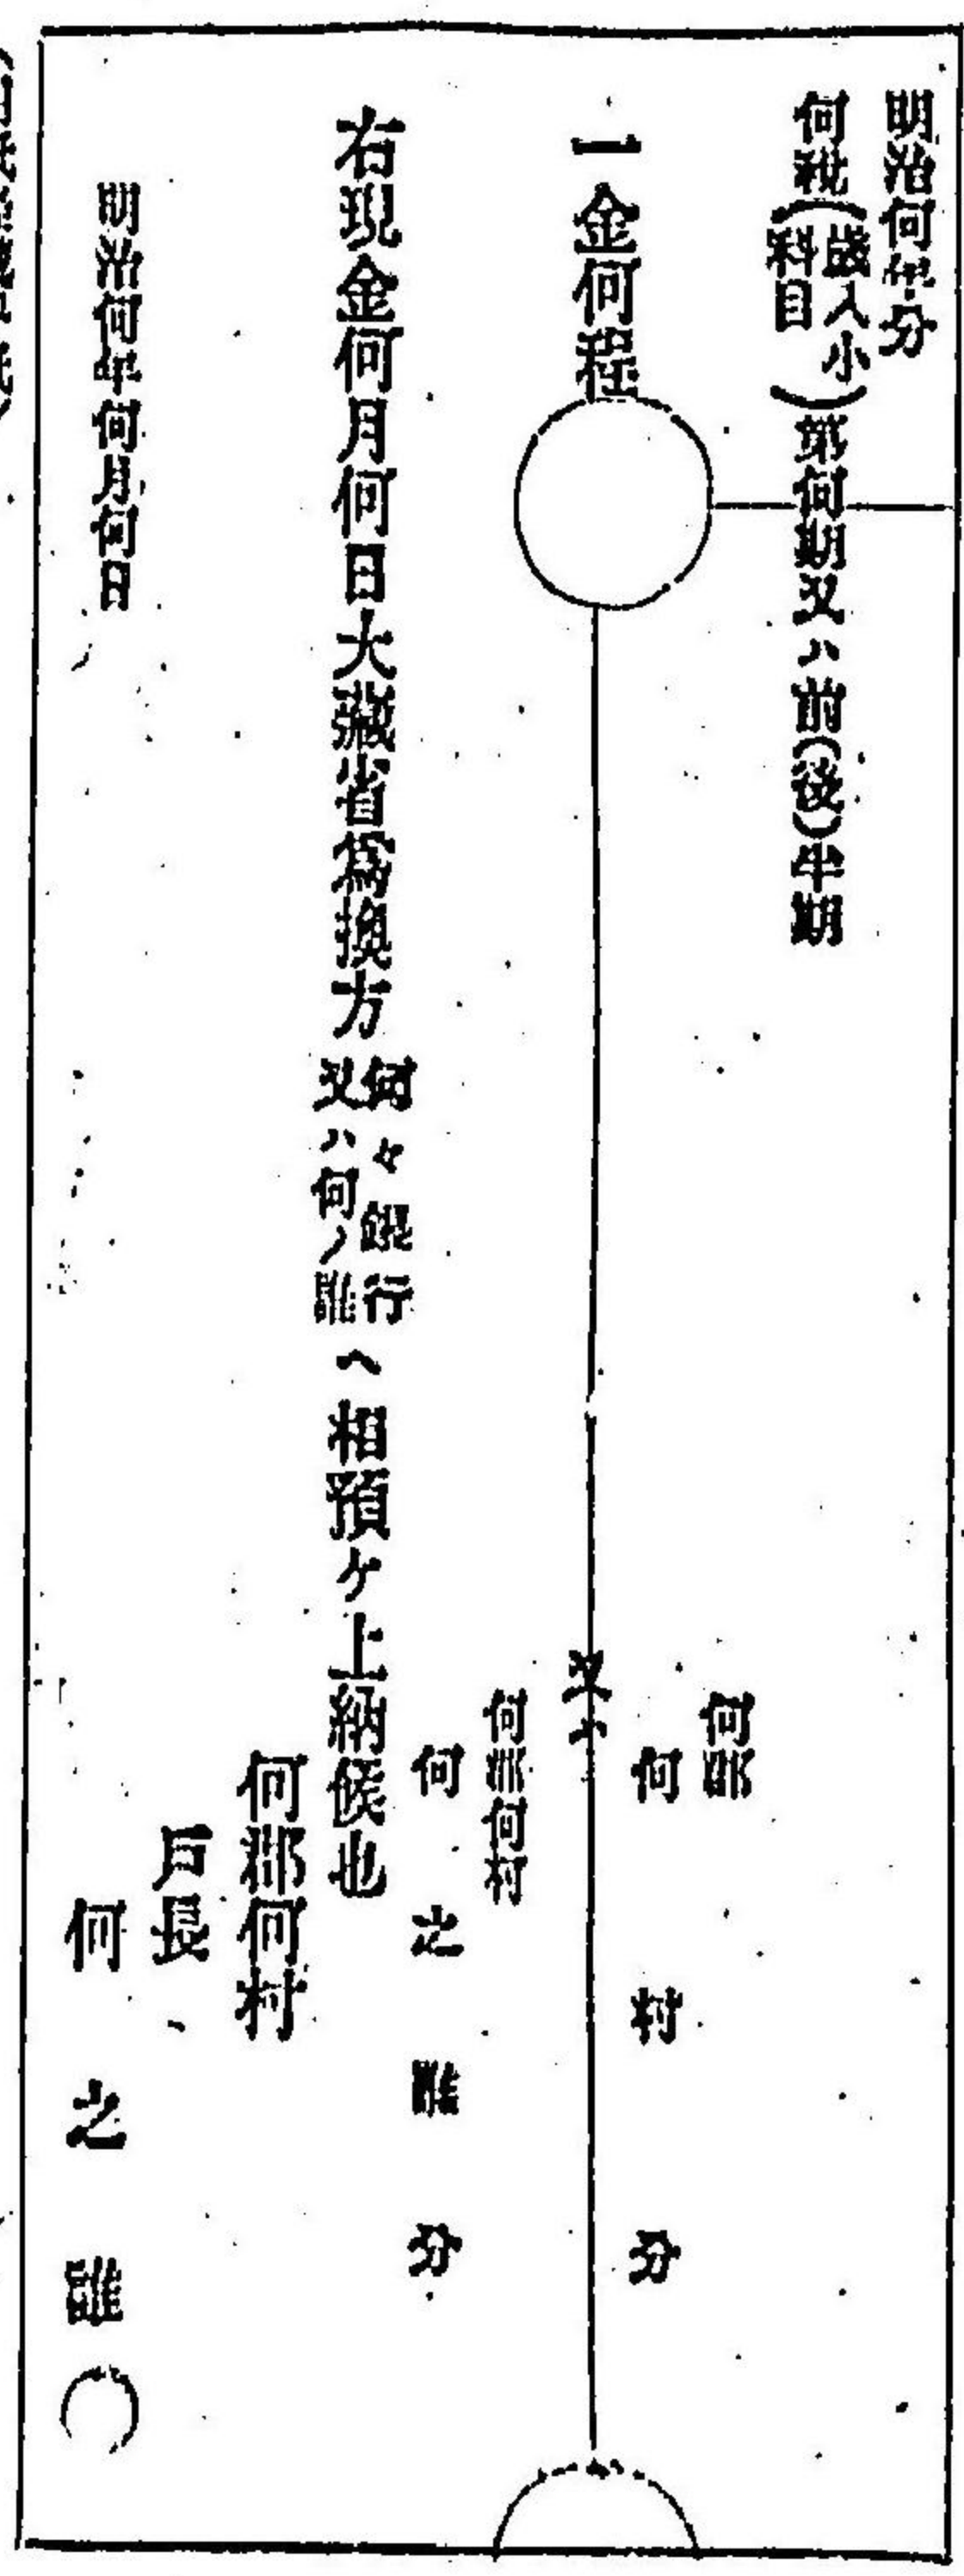 明治何年分
何税(歳入小科目)第何期又ハ前(後)半期
一金何程
何郡
何村分
又ハ
何郡何村
何之誰分
右現金何月何日大藏省爲換方何々銀行又ハ何ノ誰へ相預ケ上納候也
何郡何村
戸長
何之誰
明治何年何月何日